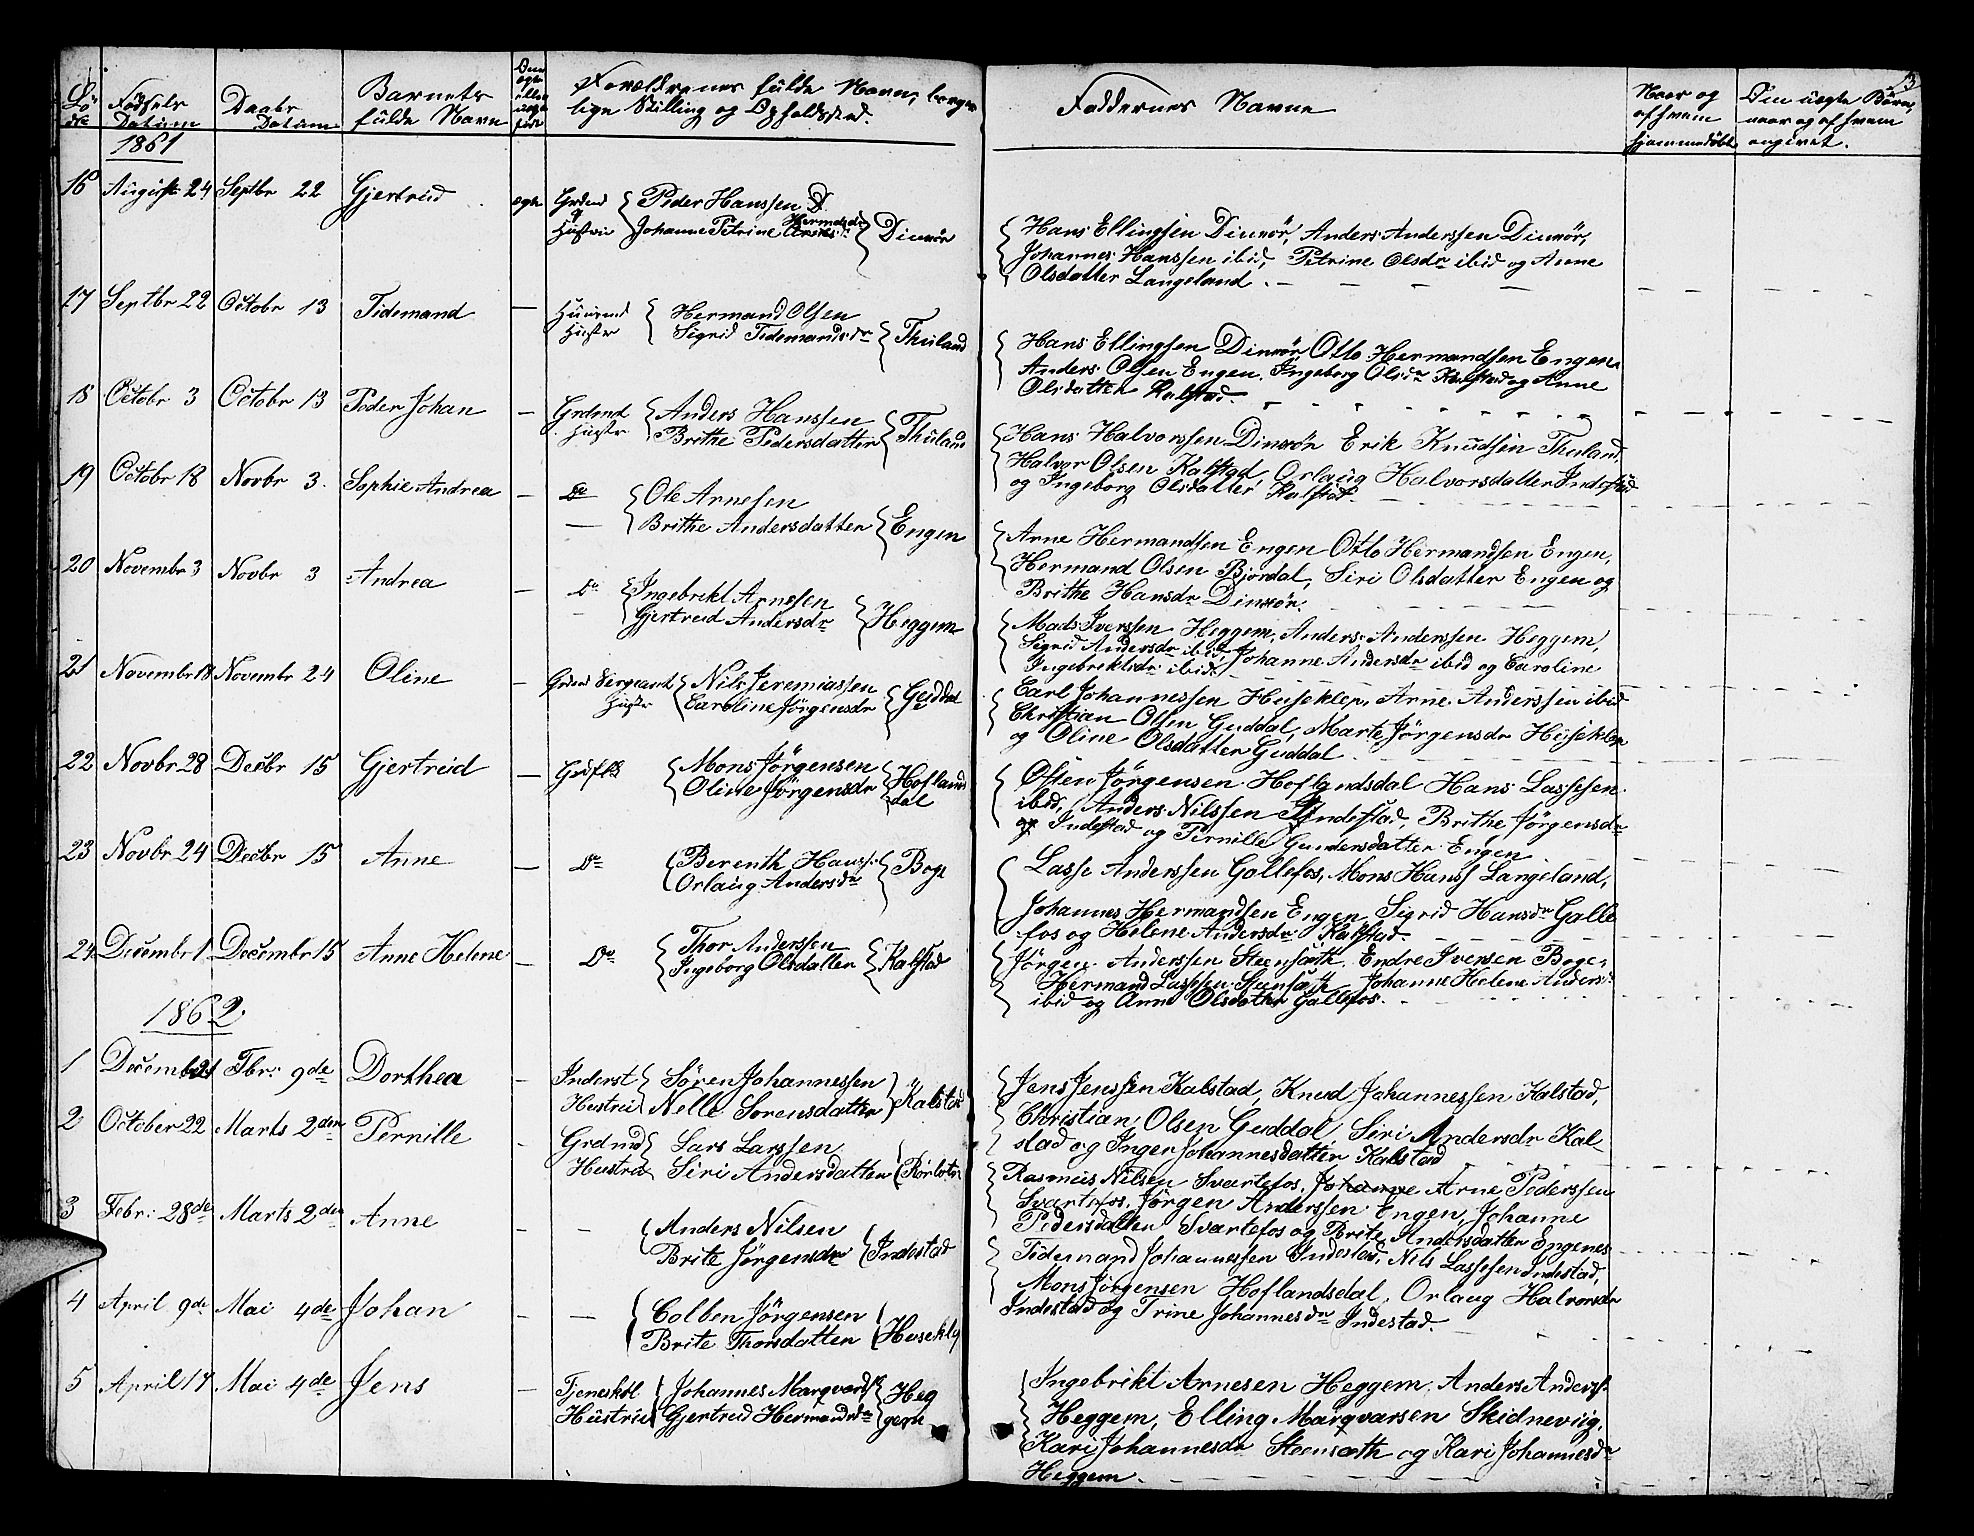 3
Lö- Fødsels Daabs Barnets Om Forældrenes fulde Navn, borger- Faddernes Navne Naar og Om uægte Børn,
be Datum Datum fulde Navn ægte eller uægte født lige Stilling og Opholdsted. af hvem hjemmedöbt naar og af hvem angivet.
1861
16 August 24 Septbr 22 Gjertrud ægte Grdmd Peder Hanssen D.
Hustru Johanne Petrine Hermdsdr Dinnör
Hans Ellingsen Dinnör, Anders Anderssen Dinnör,
Johannes Hanssen ibid, Petrine Olsdr ibid og Anne
Olsdatter Langeland.
17 Septbr 22 Octobr 13 Tidemand — Huusmd Hermand Olsen
Hustr Sigrid Tidemandsdr Thuland
Hans Ellingsen Dinnör, Otto Hermandsen Engen,
Anders Olsen Engen, Ingeborg Olsdr Kalstad og Anne
Olsdatter Kalstad.
18 Octobr 3 Octobr 13 Peder Johan — Grdmd Anders Hanssen
Hustr Brithe Pedersdatter Thuland
Hans Halvorssen Dinnör Erik Knudsen Thuland
Halvor Olsen Kalstad, Orlaug Halvorsdatter Indestad
og Ingeborg Olsdatter Kalstad.
19 Octobr 18 Novbr 3. Sophie Andrea — Do Ole Arnesen
— Brithe Andersdatter Engen
Arne Hermandsen Engen Otto Hermandsen Engen,
Hermand Olsen Bjordal, Siri Olsdatter Engen og
Brithe Hansdr Dinnör.
20 Novembr 3 Novbr 3 Andrea — Do Ingebrikt Arnesen
— Gjertrud Andersdr Heggem
Mads Iverssen Heggem, Anders Anderssen Heggem,
Sigrid Andersdr ibid, Johanne Andersdr ibid og Caroline
Ingebriktsdr ibid.
21 Novembr 18 Novembr 24 Oline — Grdmd Sergeant Nils Jeremiassen
Hustr Caroline Jörgensdr Guddal
Carl Johannessen Huseklep, Arne Anderssen ibid
Christian Olsen Guddal, Marte Jörgensdr Huseklep
og Oline Olsdatter Guddal.
22 Novbr 28 Decbr 15 Gjertrud — Grdflk Mons Jörgensen
Oline Jörgensdr Hoflands
dal
Osten Jörgensen Hoflandsdal Hans Lassesen
ibid, Anders Nilssen Indestad, Brithe Jörgensdr
Indestad og Pernille Gundersdatter Engen
23 Novbr 24 Decbr 15 Anne — Do Berenth Hanss.
Orlaug Andersdr Boge
Lasse Anderssen Gallefos, Mons Hanss Langeland,
Johannes Hermandsen Engen, Sigrid Hansdr Galle
fos og Helene Andersdr Kalstad.
24 Decembr 1 Decembr 15 Anne Helene — Do Thor Anderssen
Ingeborg Olsdatter Kalstad
Jörgen Anderssen Steensæth, Endre Iversen Boge,
Hermand Lassesen Steensæth, Johanne Helene Anders.d
ibid og Anne Olsdatter Gallefos.
1862
1 Decemb 21 Fbr: 9de Dorthea — Inderst Sören Johannessen
Hustru Nelle Sorensdatter Kalstad
Jens Jenssen Kalstad, Knud Johannessen Kalstad,
Christian Olsen Guddal, Siri Andersdr Kal-
stad og Inger Johannesdatter Kalstad
2 October 22 Marts 2den Pernille — Grdmd Lars Larssen
Hustru Siri Andersdatter
Rasmus Nilsen Svartefos, Johanne Arne Pederssen
Svartefos, Jörgen Anderssen Engen, Johanne
Pedersdatter Svartefos og Brite Andersdatter Engenes
3 Febr: 28de Marts 2den Anne — — Anders Nilsen
Brite Jörgensdr Indestad
Tidemand Johannessen Indestad, Nils Lassesen Indestad,
Mons Jörgensen Hoflandsdal, Orlaug Halvorsdr
Indestad og Trine Johannesdr Indestad.
4 April 9de Mai 4de Johan — — Colben Jörgensen
Brite Thorsdatter Huseklep
5 April 17 Mai 4de Jens — Tjeneskal Johannes Marqvards.
Hustru Gjertrud Hermandsdr Heg
gem
Ingebrikt Arnesen Heggem, Anders Anderss.
Heggem, Elling Marqvarsen Skidneviig,
Kari Johannesdr Steensæth og Kari Johannesdr
Heggem.